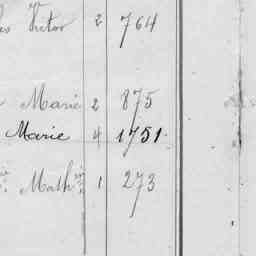 Victor 2 764
Marie 2 875
Marie 4 1751
Math 1 273